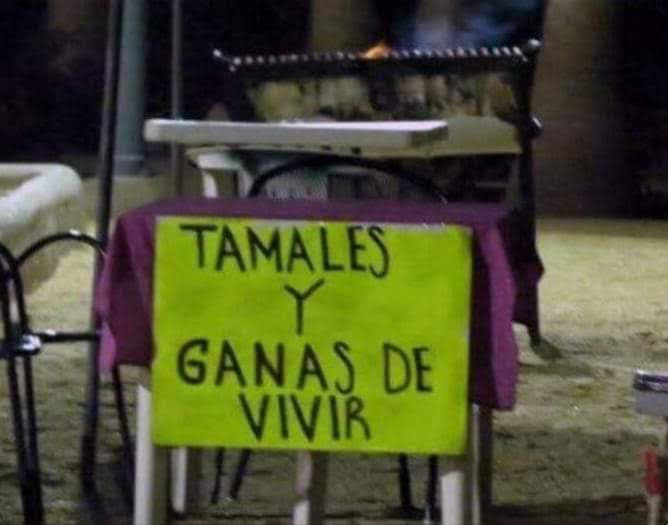 TAMALES
Y
GANAS DE
VIVIR